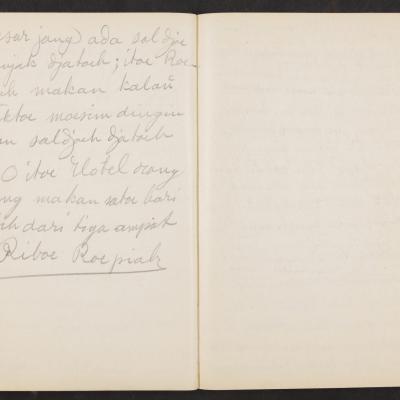 esar jang) ada saldjoe
njak djatoeh; itoe Roe-
ah makan kalaŭ
ktoe moesim dingin
an saldjoeh djatoeh
O itoe Hotel orang
ng makan satoe hari
ih dari tiga ampat
Riboe Roepiah